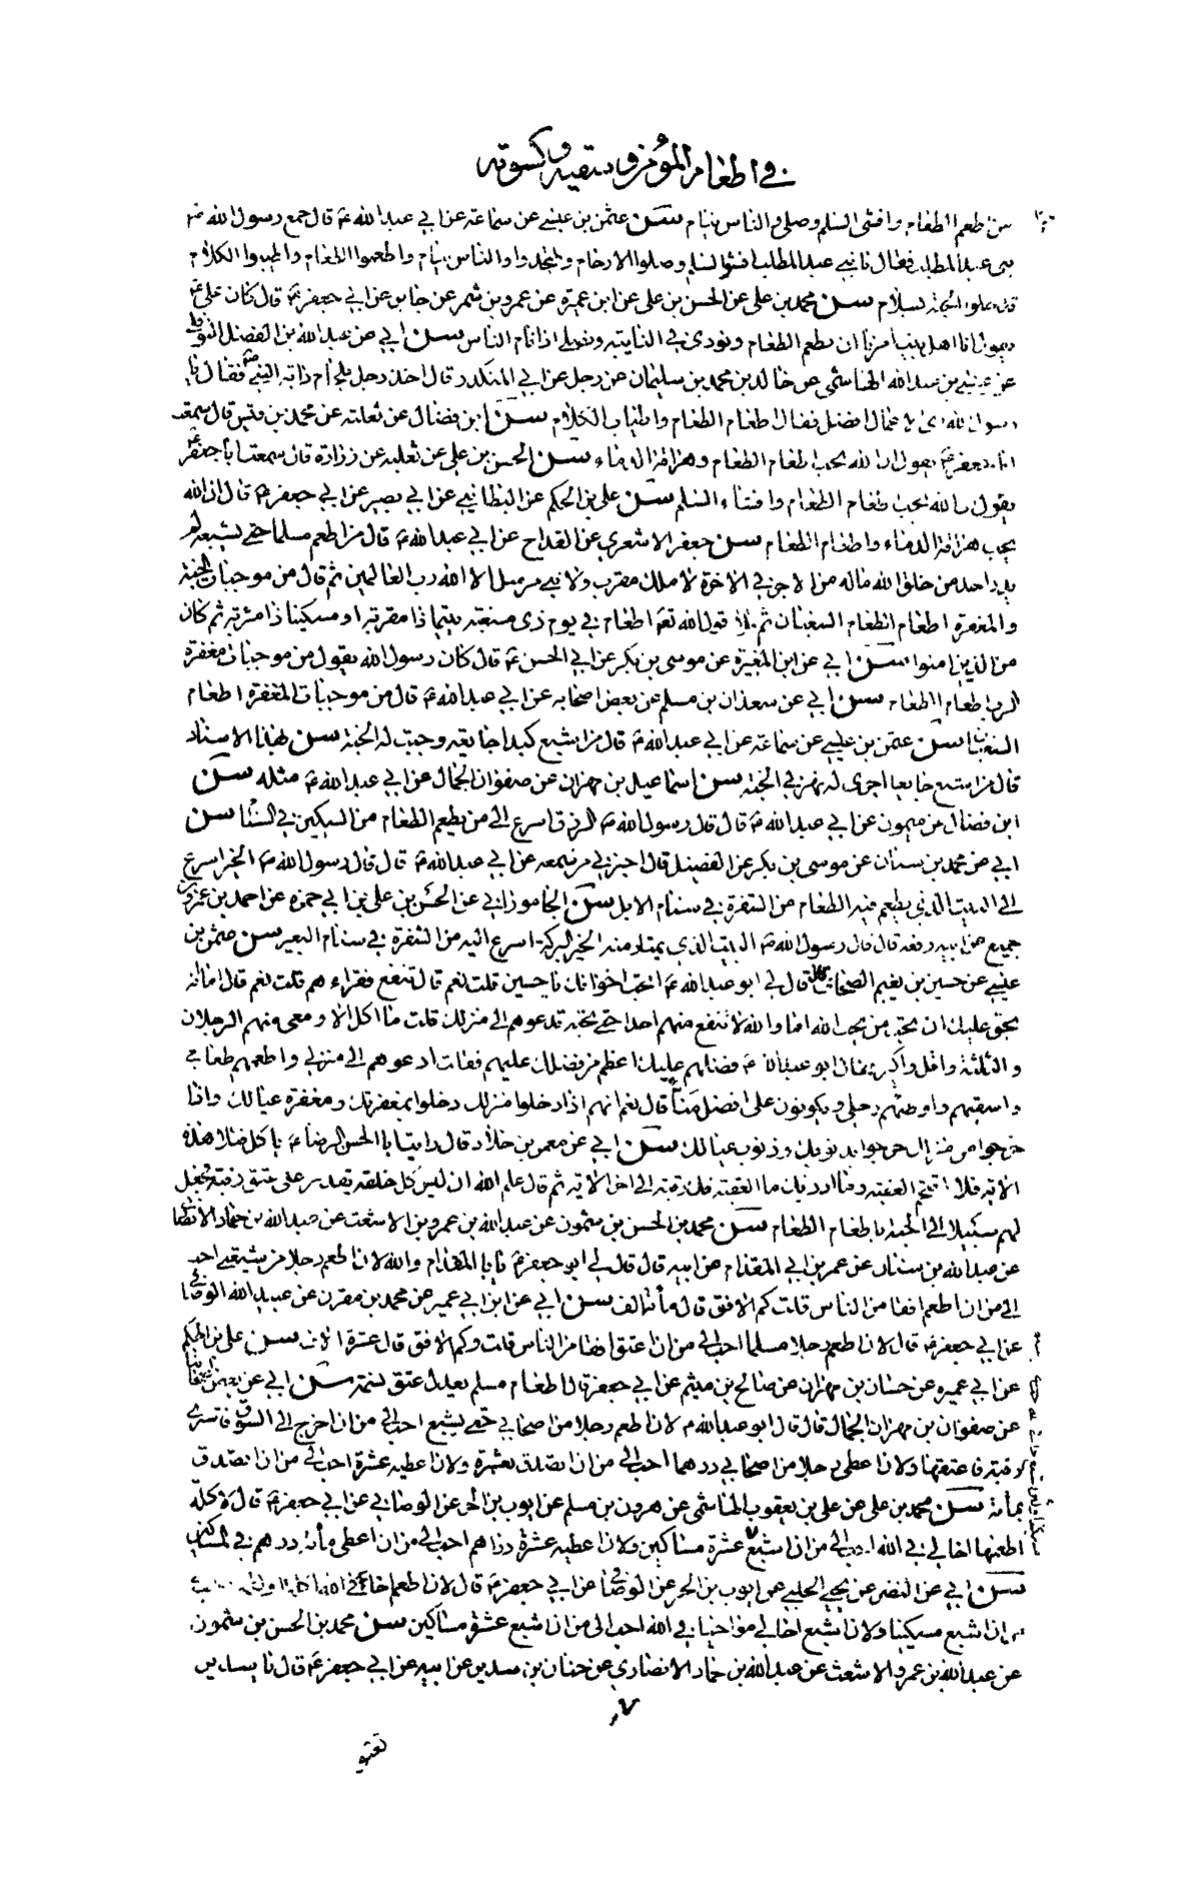 في اطعام المؤمن و سقيه و كسوته
من اطعم الطعام وافشى السلم وصلى والناس نيام سن عثمن بن عيسى عن سماعة عن ابي عبدالله ع قال جمع رسول الله ص
بنى عبدالمطلب فقال يا بنى عبدالمطلب افشوا السلم وصلوا الارحام وتهجدوا والناس نيام واطعموا الطعام واطيبوا الكلام
تدخلوا الجنة بسلام سن محمد بن على عن الحسن بن على عن ابن عميرة عن عمرو بن شمر عن جابر عن ابي جعفر ع قال كان على ع
يقول انا اهل بيت امرنا ان نطعم الطعام ونودى في النايبة ونصلى اذا نام الناس سن ابي عن عبدالله بن الفضل النوفلى
عن عيسى بن عبدالله الهاشمى عن خالد بن محمد بن سليمان عن رجل عن ابي المنكدر قال اخذ رجل بلجام دابة النبي ص فقال يا
رسول الله اى الاعمال افضل فقال اطعام الطعام واطياب الكلام سن ابن فضال عن ثعلبة عن محمد بن قيس قال سمعت
ابا جعفر ع يقول ان الله يحب اطعام الطعام وهراقة الدماء سن الحسن بن على عن ثعلبة عن زرارة قال سمعت ابا جعفر ع
يقول ان الله يحب طعام الطعام وافشاء السلم سن على بن الحكم عن البطايني عن ابي بصير عن ابي جعفر ع قال ان الله
يحب هراقة الدماء واطعام الطعام سن جعفر الاشعرى عن القداح عن ابي عبدالله ع قال من اطعم مسلما حتى يشبعه لم
يدر احد من خلق الله ماله من الاجر في الاخرة لا ملك مقرب ولا نبي مرسل الا الله رب العالمين ثم قال من موجبات الجنة
والمغفرة اطعام الطعام السغبان ثم تلا قول الله تع اطعام في يوم ذى مسغبة يتيما ذا مقربة او مسكينا ذا متربة ثم كان
من الذين امنوا سن ابي عن ابن المغيرة عن موسى بن بكر عن ابي الحسن ع قال كان رسول الله يقول من موجبات مغفرة
الرب اطعام الطعام سن ابي عن سعدان بن مسلم عن بعض اصحابه عن ابي عبدالله ع قال من موجبات المغفرة اطعام
السغبان سن عثمن بن عيسى عن سماعة عن ابي عبدالله ع قال من اشبع كبدا جايعة وجبت له الجنة سن بهذا الاسناد
قال من اشبع جايعا اجرى له نهر في الجنة سن اسماعيل بن مهران عن صفوان الجمال عن ابي عبدالله ع مثله سن
ابن فضال عن ميمون عن ابي عبدالله ع قال قال رسول الله ص الرزق اسرع الى من يطعم الطعام من السكين في السنام سن
ابي عن محمد بن سنان عن موسى بن بكر عن الفضيل قال اخبرني من سمعه عن ابي عبدالله ع قال قال رسول الله ص الخير اسرع
الى البيت الذى يطعم فيه الطعام من الشفرة في سنام الابل سن الجاموراني عن الحسن بن على بن ابي حمزة عن احمد بن عمرو بن
جميع عن ابيه رفعه قال قال رسول الله ص البيت الذى يمتار منه الخير البركة اسرع اليه من الشفرة في سنام البعير سن عثمن بن
عيسى عن حسين بن نعيم الصحاف قال قال لي ابو عبدالله ع اتحب اخوانك يا حسين قلت نعم قال تنفع فقراءهم قلت نعم قال اما انه
يحق عليك ان تحب من يحب الله اما والله لا تنفع منهم احدا حتى تحبه تدعوهم الى منزلك قلت ما اكل الا ومعى منهم الرجلان
والثلثة واقل واكثر فقال ابو عبدالله ع فضلهم عليك اعظم من فضلك عليهم فقلت ادعوهم الى منزلي واطعمهم طعامي
واسقيهم واوطئهم رحلى ويكونون على افضل منا قال نعم انهم اذا دخلوا منزلك دخلوا بمغفرتك ومغفرة عيالك واذا
خرجوا من منزلك خرجوا بذنوبك وذنوب عيالك سن ابي عن معمر بن خلاد قال رايت ابا الحسن الرضا ع ياكل فتلا هذه
الاية فلا اقتحم العقبة وما ادريك ما العقبة فك رقبة الى اخر الاية ثم قال علم الله ان ليس كل خلقه يقدر على عتق رقبة فجعل
لهم سبيلا الى الجنة باطعام الطعام سن محمد بن الحسن بن شمون عن عبدالله بن عمرو بن الاشعث عن عبدالله بن حماد الانصا
عن عبدالله بن سنان عن عمر بن ابي المقدام عن ابيه قال قال لي ابو جعفر ع يا با المقدام والله لان اطعم رجلا من شيعتى احب
الى من ان اطعم افقا من الناس قلت كم الافق قال مائة الف سن ابي عن ابن ابي عمير عن محمد بن مقرن عن عبيد الله الوصافي
عن ابي جعفر ع قال لان اطعم رجلا مسلما احب الى من ان اعتق افقا من الناس قلت وكم الافق قال عشرة الاف سن على بن الحكم
عن ابي عميره عن حسان بن مهران عن صالح بن ميثم عن ابي جعفر قال اطعام مسلم يعدل عتق نسمة سن ابي عن بعض اصحابنا
عن صفوان بن مهران الجمال قال قال ابو عبدالله ع لان اطعم رجلا من اصحابي حتى يشبع احب الى من ان اخرج الى السوق فاشترى
رقبة فاعتقها ولان اعطى رجلا من اصحابي درهما احب الى من ان اتصدق بعشرة ولان اعطيه عشرة احب الى من ان اتصدق
بمائة سن محمد بن على عن على بن يعقوب الهاشمى عن هرون بن مسلم عن ايوب بن الحر عن الوصافي عن ابي جعفر ع قال لاكلة
اطعمها اخا لي في الله احب الى من ان اشبع عشرة مساكين ولان اعطيه عشرة دراهم احب الى من ان اعطى مائة درهم في المساكين
سن ابي عن النضر عن يحيى الحلبي عن ايوب بن الحر عن الوصافي عن ابي جعفر ع قال لان اطعم اخا في الله
من ان اشبع مسكينا ولان اشبع اخا لي مواخيا في الله احب الى من ان اشبع عشرة مساكين سن محمد بن الحسن بن شمون
عن عبدالله بن عمرو الاشعث عن عبدالله بن حماد الانصارى عن حنان بن سدير عن ابيه عن ابي جعفر ع قال يا سدير
تعتق